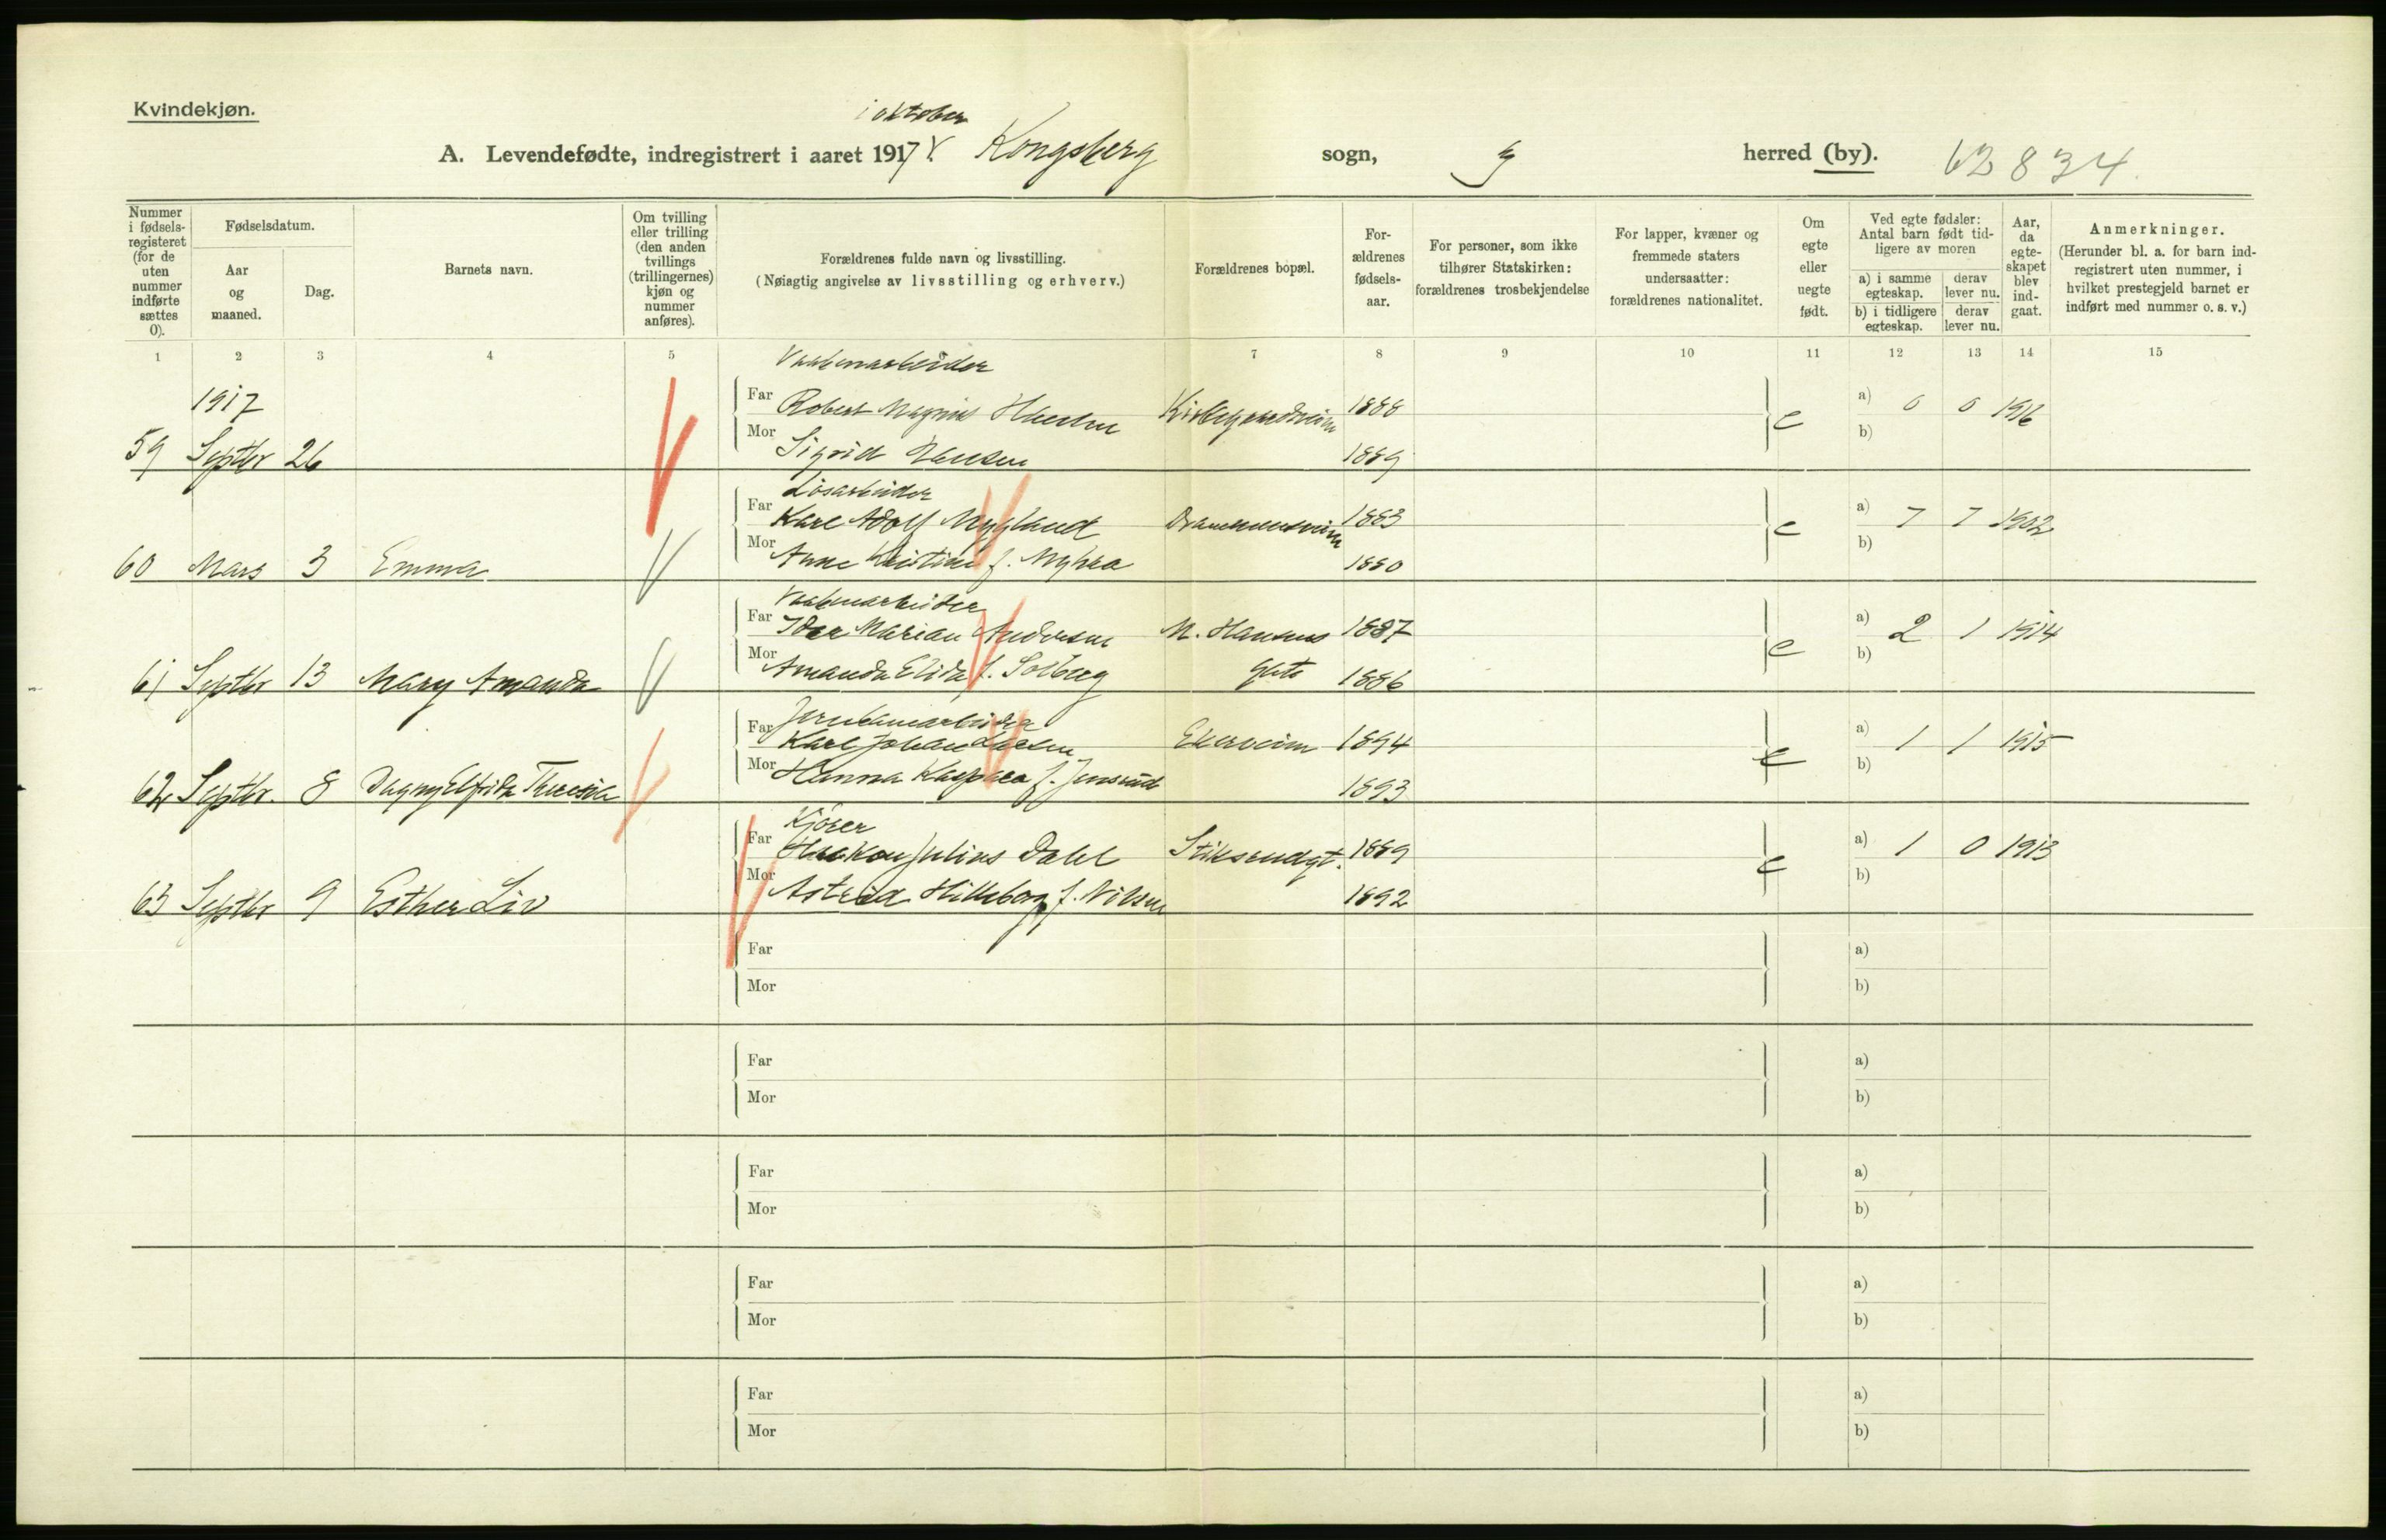 Kvindekjøn.
i oktober
A. Levendefødte, indregistrert i aaret 1917 Kongsberg sogn, herred (by). 62834
Nummer i fødsels-registeret (for de uten nummer indførte sættes 0).
Fødselsdatum.
Aar og maaned.
Dag.
Barnets navn.
Om tvilling eller trilling (den anden tvillings (trillingernes) kjøn og nummer anføres).
Forældrenes fulde navn og livsstilling.
(Nøiagtig angivelse av livsstilling og erhverv.)
Forældrenes bopæl.
For-ældrenes fødsels-aar.
For personer, som ikke tilhører Statskirken: forældrenes trosbekjendelse
For lapper, kvæner og fremmede staters undersaatter: forældrenes nationalitet.
Om egte eller uegte født.
Ved egte fødsler: Antal barn født tid-ligere av moren
a) i samme egteskap.
derav lever nu.
b) i tidligere egteskap.
derav lever nu.
Aar, da egte-skapet blev ind-gaat.
Anmerkninger.
(Herunder bl. a. for barn ind-registrert uten nummer, i hvilket prestegjeld barnet er indført med nummer o. s. v.)
1 2 3 4 5 7 8 9 10 11 12 13 14 15
Vaabenarbeider
1917
Far Robert Magnus 1888 e a) 0 0 1916
Mor Sigrid Hansen 1889 b)
59 Septbr 26
Løsarbeider
Far Karl Adolf Nygland 1883 e a) 7 7 1902
Mor Anne Kristine f. Myhra 1880 b)
60 Mars 3 Emma
Vaabenarbeider
Far Marian Andersen M. Hansens 1887 e a) 2 1 1914
Mor Amanda Elida f. Solberg gate 1886 b)
61 Septbr 13 Mary Amanda
Far Karl Johan Larsen 1894 e a) 1 1 1915
Mor Hanna f. Jensrud 1893 b)
62 Septbr. 8 Dagny Elfrida
Kjører
Far Haakon Julius Dahl 1889 e a) 1 0 1913
Mor Astrid Hilleborg f. Nilsen 1892 b)
63 Septbr 9 Esther Liv
Far a)
Mor b)
Far a)
Mor b)
Far a)
Mor b)
Far a)
Mor b)
Far a)
Mor b)